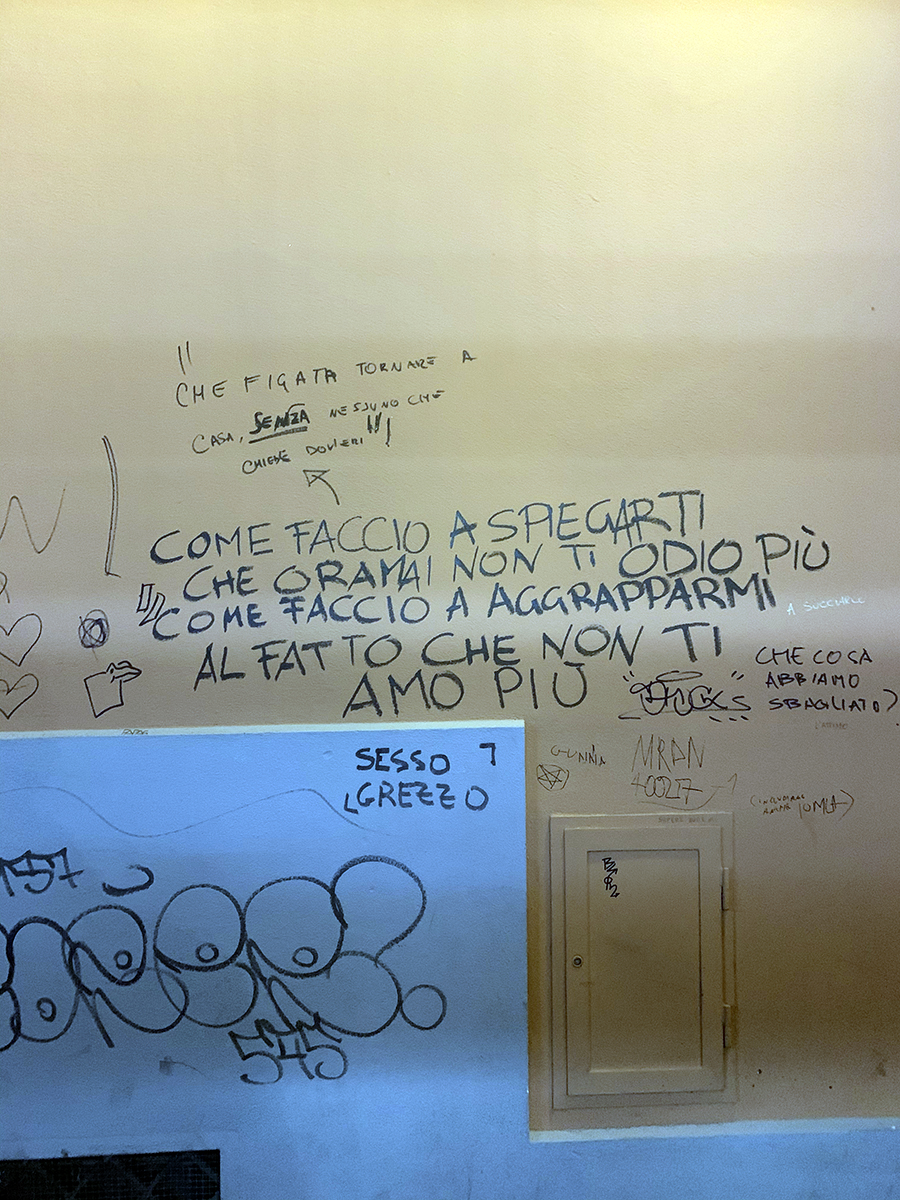 "CHE FIGATA TORNARE A
CASA, SENZA NESSUNO CHE
CHIEDE DOV'ERI"!
COME FACCIO A SPIEGARTI
CHE ORAMAI NON TI ODIO PIÙ
COME FACCIO A AGGRAPPARMI
AL FATTO CHE NON TI
AMO PIÙ
CHE COSA
ABBIAMO
SBAGLIATO?
SESSO
GREZZO
MRDN
400217
545